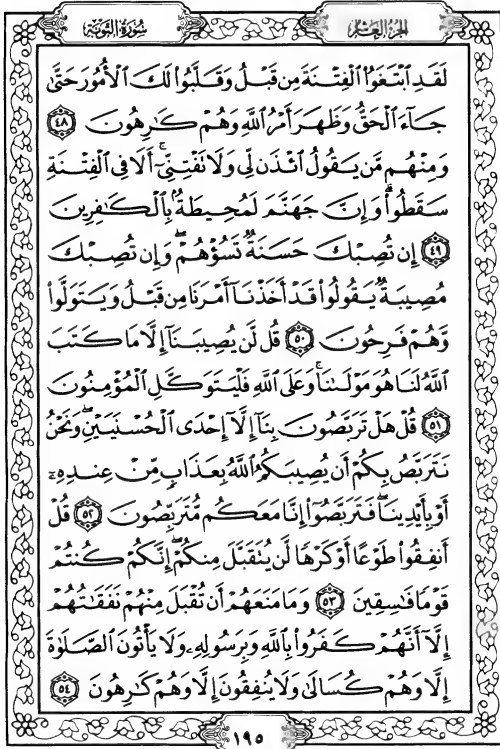 سورة التوبة
الجزء العاشر
لَقَدِ ٱبْتَغَوُا۟ ٱلْفِتْنَةَ مِن قَبْلُ وَقَلَّبُوا۟ لَكَ ٱلْأُمُورَ حَتَّىٰ
جَآءَ ٱلْحَقُّ وَظَهَرَ أَمْرُ ٱللَّهِ وَهُمْ كَـٰرِهُونَ ٤٨
وَمِنْهُم مَّن يَقُولُ ٱئْذَن لِّى وَلَا تَفْتِنِّىٓ ۚ أَلَا فِى ٱلْفِتْنَةِ
سَقَطُوا۟ ۗ وَإِنَّ جَهَنَّمَ لَمُحِيطَةٌۢ بِٱلْكَـٰفِرِينَ
٤٩ إِن تُصِبْكَ حَسَنَةٌ تَسُؤْهُمْ ۖ وَإِن تُصِبْكَ
مُصِيبَةٌ يَقُولُوا۟ قَدْ أَخَذْنَآ أَمْرَنَا مِن قَبْلُ وَيَتَوَلَّوا۟
وَّهُمْ فَرِحُونَ ٥٠ قُل لَّن يُصِيبَنَآ إِلَّا مَا كَتَبَ
ٱللَّهُ لَنَا هُوَ مَوْلَىٰنَا ۚ وَعَلَى ٱللَّهِ فَلْيَتَوَكَّلِ ٱلْمُؤْمِنُونَ
٥١ قُلْ هَلْ تَرَبَّصُونَ بِنَآ إِلَّآ إِحْدَى ٱلْحُسْنَيَيْنِ ۖ وَنَحْنُ
نَتَرَبَّصُ بِكُمْ أَن يُصِيبَكُمُ ٱللَّهُ بِعَذَابٍ مِّنْ عِندِهِۦٓ
أَوْ بِأَيْدِينَا ۖ فَتَرَبَّصُوٓا۟ إِنَّا مَعَكُم مُّتَرَبِّصُونَ ٥٢ قُلْ
أَنفِقُوا۟ طَوْعًا أَوْ كَرْهًا لَّن يُتَقَبَّلَ مِنكُمْ ۖ إِنَّكُمْ كُنتُمْ
قَوْمًا فَـٰسِقِينَ ٥٣ وَمَا مَنَعَهُمْ أَن تُقْبَلَ مِنْهُمْ نَفَقَـٰتُهُمْ
إِلَّآ أَنَّهُمْ كَفَرُوا۟ بِٱللَّهِ وَبِرَسُولِهِۦ وَلَا يَأْتُونَ ٱلصَّلَوٰةَ
إِلَّا وَهُمْ كُسَالَىٰ وَلَا يُنفِقُونَ إِلَّا وَهُمْ كَـٰرِهُونَ ٥٤
١٩٥